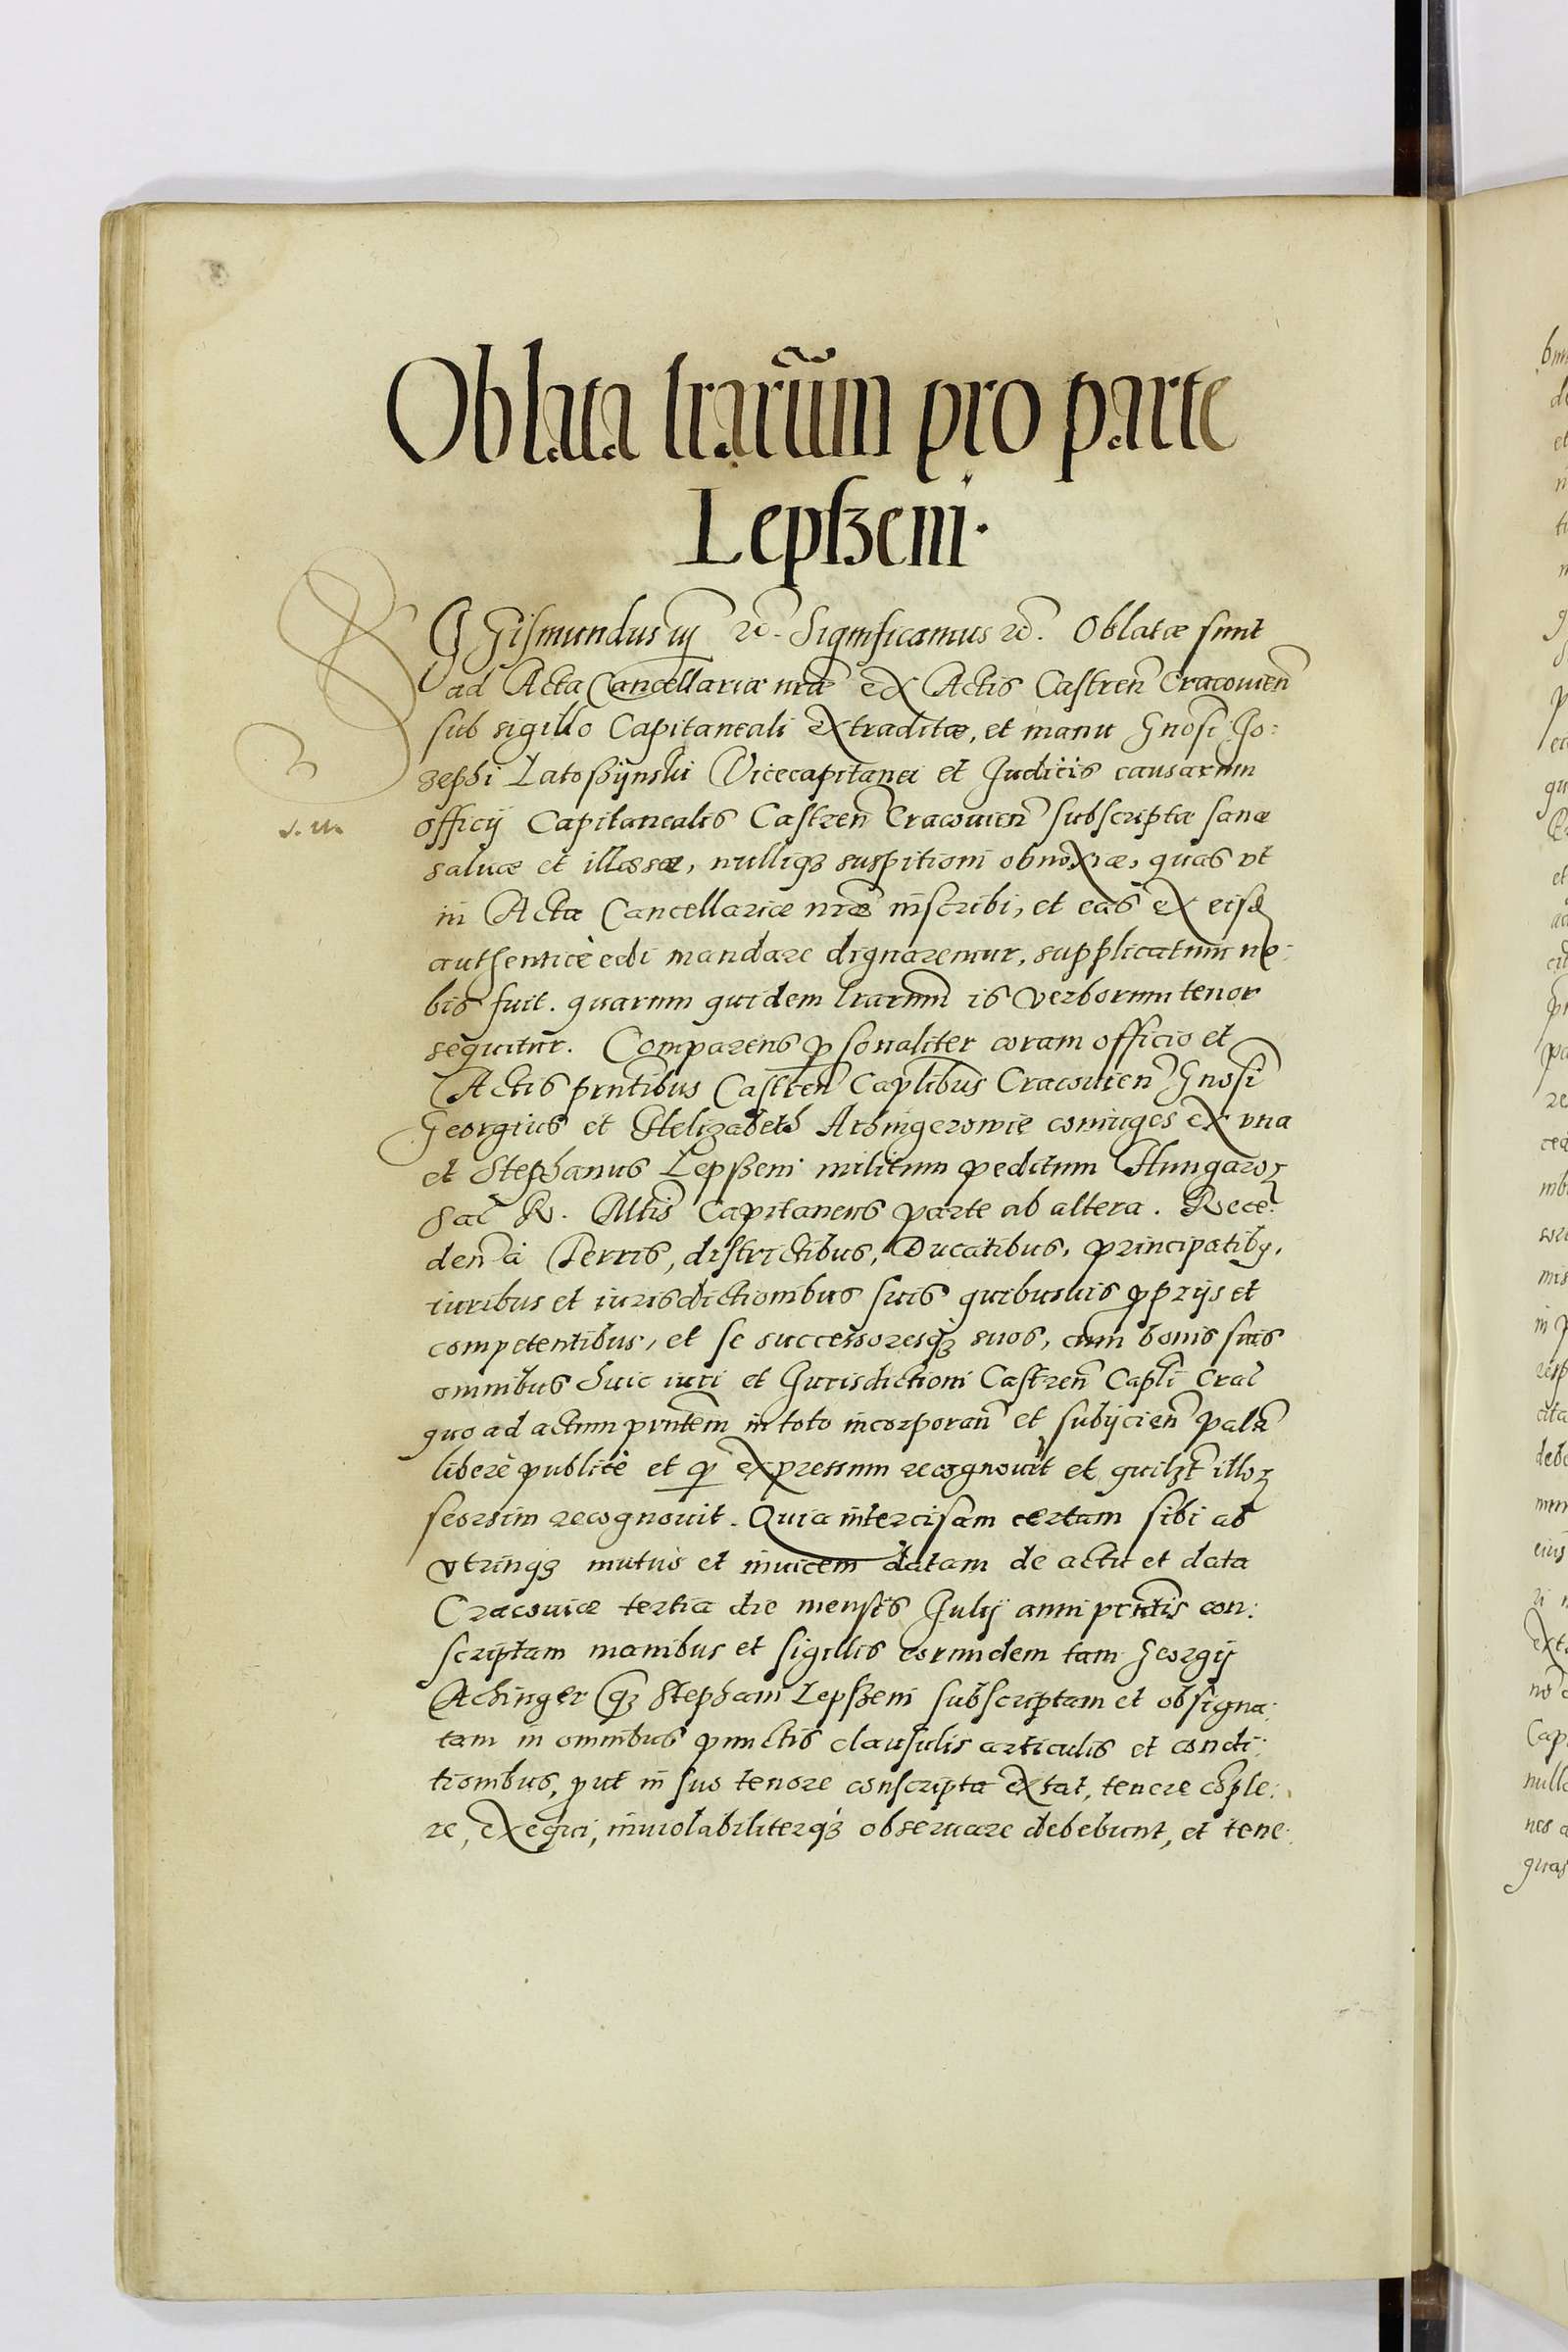 Oblata lrarum pro parte
Lepßeni.
SGismundus iij etc. Significamus etc. Oblatæ sunt
ad Acta Cancellariæ nrae ex Actis Castren Cracovien
sub sigillo Capitaneali extraditæ, et manu Gnosi Jo:
zephi Latoßÿnski Vicecapitanei et Judicis causarum
officij Capitanealis Castren Cracouien subscriptæ sanæ
saluæ et illæsæ, nulliqz suspitioni obnoxiæ, quas vt
in Acta Cancellariæ nræ inscribi, et eas ex eisd
authenticè edi mandare dignaremur, supplicatum no:
bis fuit. quarum quidem lrarum is verborum tenor
sequitur. Comparens psonaliter coram officio et
Actis prntibus Castren Caplibus Cracouien Gnosi
Georgius et Helizabeth Achingerowie coniuges ex vna
et Stephanus Lepßeni militum peditum Hungaroꝝ
Sac R. Mltis Capitaneus parte ab altera. Rece:
den à Terris, districtibus, Ducatibus, principatibꝫ,
iuribus et iurisdictionibus suis quibusuis pprijs et
competentibus, et se successoresqz suos, cum bonis suis
omnibus huic iuri et Jurisdictioni Castren Capli Crac
quo ad actum prntem in toto incorporan et subijcien palã
liberè publicè et p expressum recognouit et quilzt illoꝝ
seorsim recognouit. Quia intercisam certam sibi ab
vtrinqz mutuò et inuicem datam de actu et data
Cracouiæ tertia die mensis Julij anni prntis con:
scriptam manibus et sigillis eorundem tam Georgij
Achinger qz Stephani Lepßeni subscriptam et obsigna:
tam in omnibus punctis clausulis articulis et condi:
tionibus, put in suo tenore conscripta extat, tenere cõple:
re, exequi, inuiolabiliterqz obseruare debebunt, et tene: